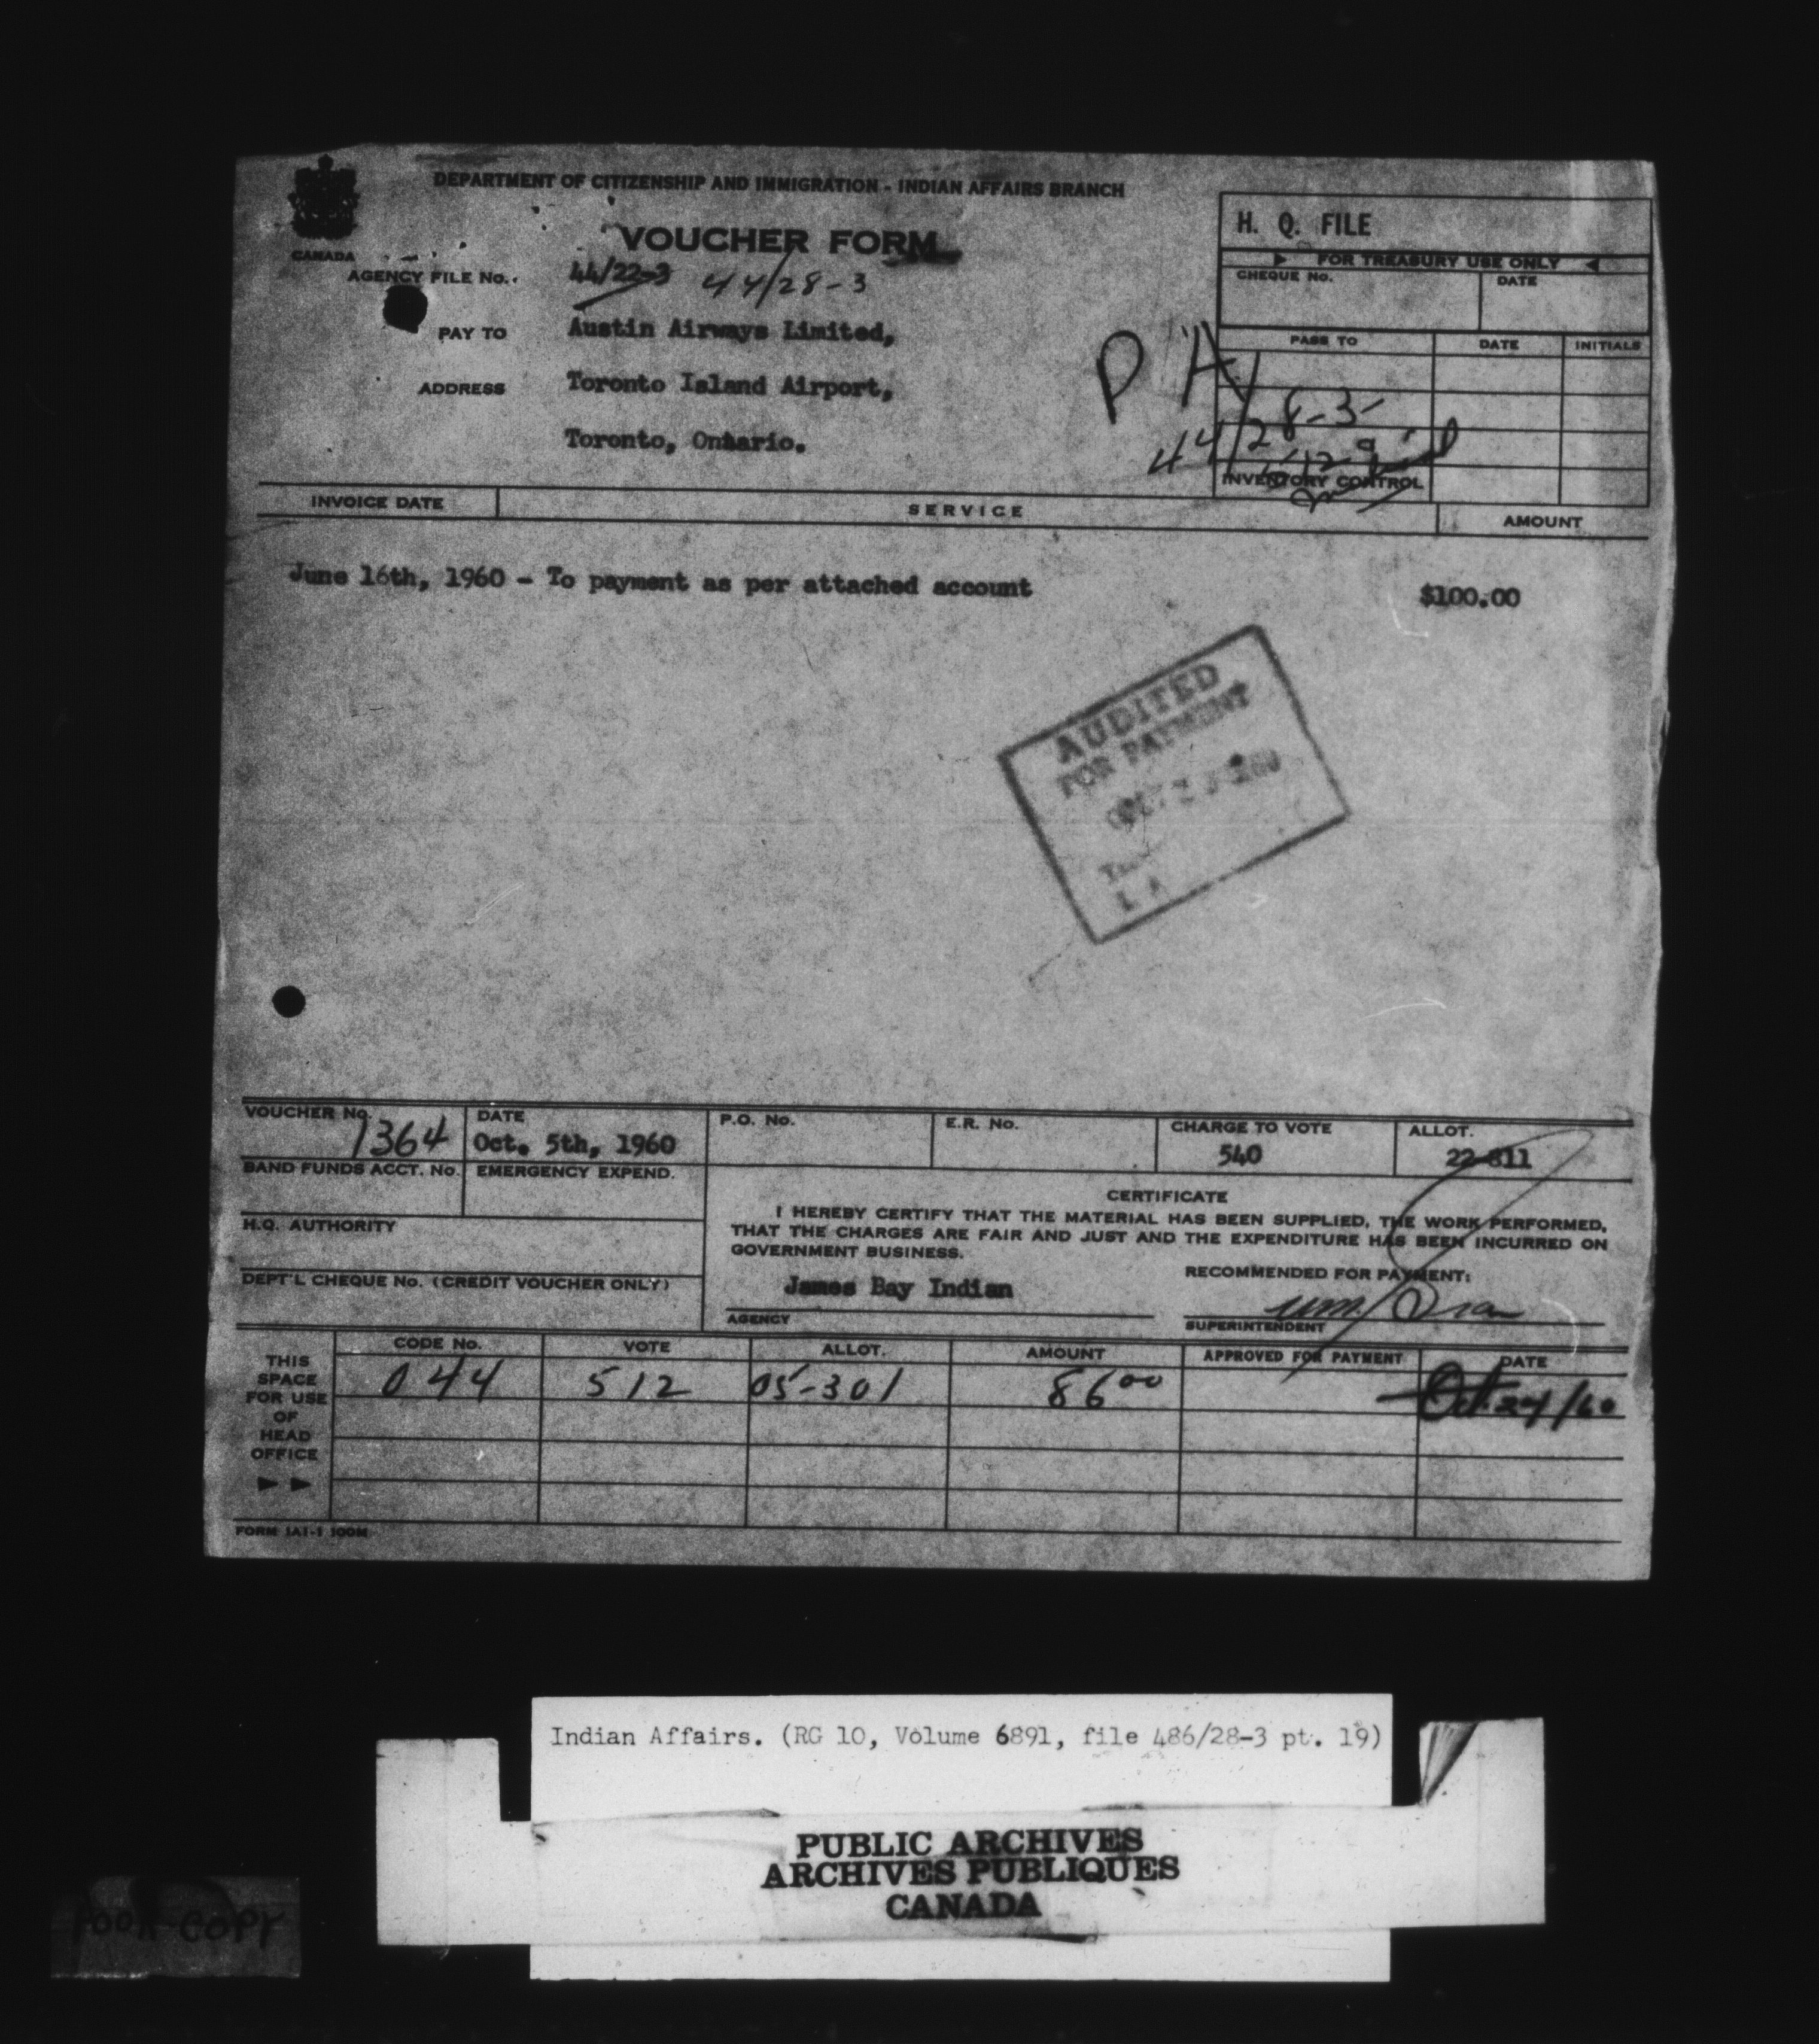 DEPARTMENT OF CITIZENSHIP AND IMMIGRATION - INDIAN AFFAIRS BRANCH
CANADA
VOUCHER FORM
H. Q. FILE
FOR TREASURY USE ONLY
CHEQUE No. DATE
AGENCY FILE No. 44/22-3 44/28-3
PAY TO Austin Airways Limited,
ADDRESS Toronto Island Airport,
Toronto, Ontario.
PASS TO DATE INITIALS
P A
44/28-3
INVENTORY CONTROL
INVOICE DATE SERVICE AMOUNT
June 16th, 1960 - To payment as per attached account $100.00
AUDITED
FOR PAYMENT
VOUCHER No. 1364 DATE Oct. 5th, 1960 P.O. No. E.R. No. CHARGE TO VOTE 540 ALLOT. 22-811
BAND FUNDS ACCT. No. EMERGENCY EXPEND.
H.Q. AUTHORITY
DEPT'L CHEQUE No. (CREDIT VOUCHER ONLY)
CERTIFICATE
I HEREBY CERTIFY THAT THE MATERIAL HAS BEEN SUPPLIED, THE WORK PERFORMED,
THAT THE CHARGES ARE FAIR AND JUST AND THE EXPENDITURE HAS BEEN INCURRED ON
GOVERNMENT BUSINESS.
RECOMMENDED FOR PAYMENT:
James Bay Indian
AGENCY SUPERINTENDENT
THIS SPACE FOR USE OF HEAD OFFICE
CODE No. VOTE ALLOT. AMOUNT APPROVED FOR PAYMENT DATE
044 512 05-301 86 00 Oct 24/60
FORM IA1-1 100M
Indian Affairs. (RG 10, Volume 6891, file 486/28-3 pt. 19)
PUBLIC ARCHIVES
ARCHIVES PUBLIQUES
CANADA
POOR COPY